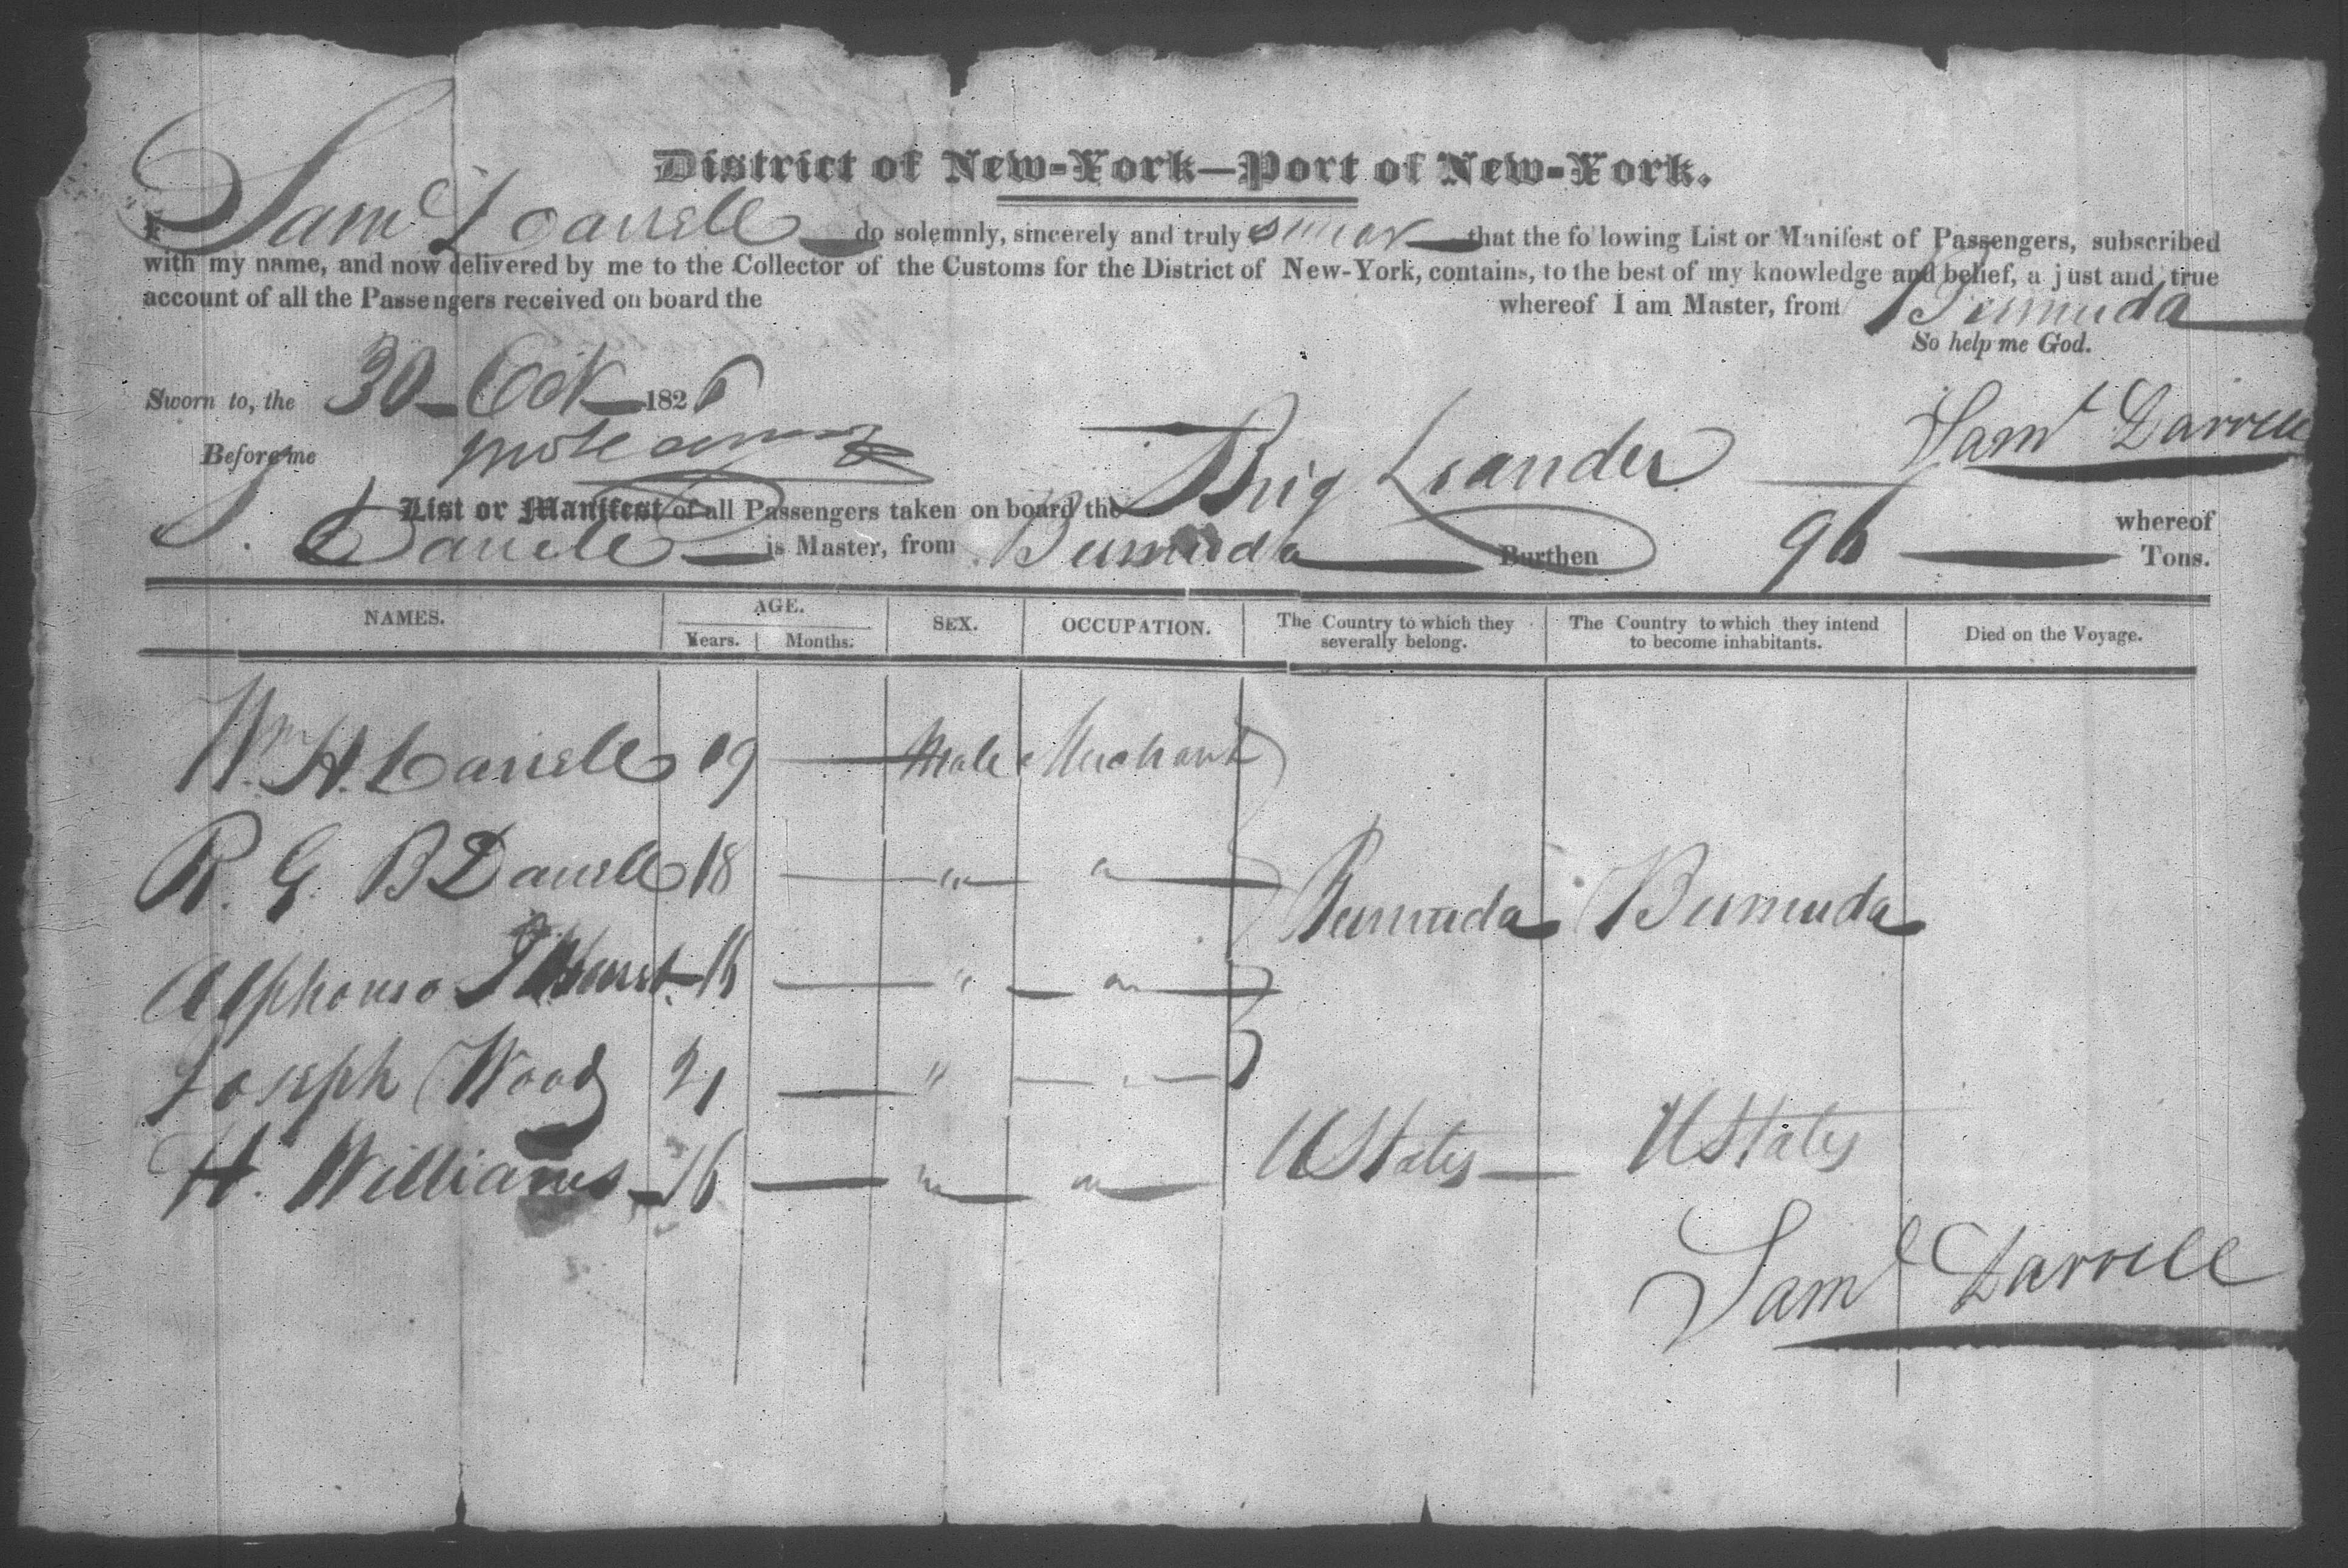 District of New-York—Port of New-York.
I Saml Darrell do solemnly, sincerely and truly swear that the following List or Manifest of Passengers, subscribed
with my name, and now delivered by me to the Collector of the Customs for the District of New-York, contains, to the best of my knowledge and belief, a just and true
account of all the Passengers received on board the whereof I am Master, from Bermuda
So help me God.
Sworn to, the 30 Oct 1826
Saml Darrell
Before me
List or Manifest of all Passengers taken on board the Brig Leander whereof
S. Darrell is Master, from Bermuda Burthen 96 Tons.
NAMES. AGE. Years. Months. SEX. OCCUPATION. The Country to which they severally belong. The Country to which they intend to become inhabitants. Died on the Voyage.
Wm H. Darrell 19 — Male Merchant
R. G. B Darrell 18 — " "
Bermuda Bermuda
Alphonso 16 — " "
Joseph Wood 21 — " "
H. Williams 16 — " " U States — U States
Saml Darrell